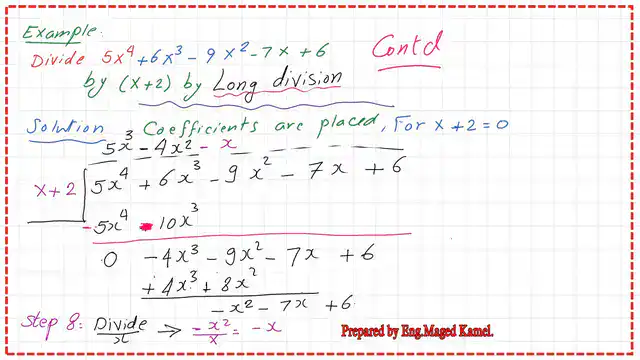 Example:
Contd
Divide 5x⁴ + 6x³ - 9x² - 7x + 6
by (x+2) by Long division
Solution Coefficients are placed, For x + 2 = 0
5x³ - 4x² - x
x+2 5x⁴ + 6x³ - 9x² - 7x + 6
-5x⁴ - 10x³
0 -4x³ - 9x² - 7x + 6
+4x³ + 8x²
-x² - 7x + 6
Step 8: Divide/x → -x²/x = -x
Prepared by Eng.Maged Kamel.